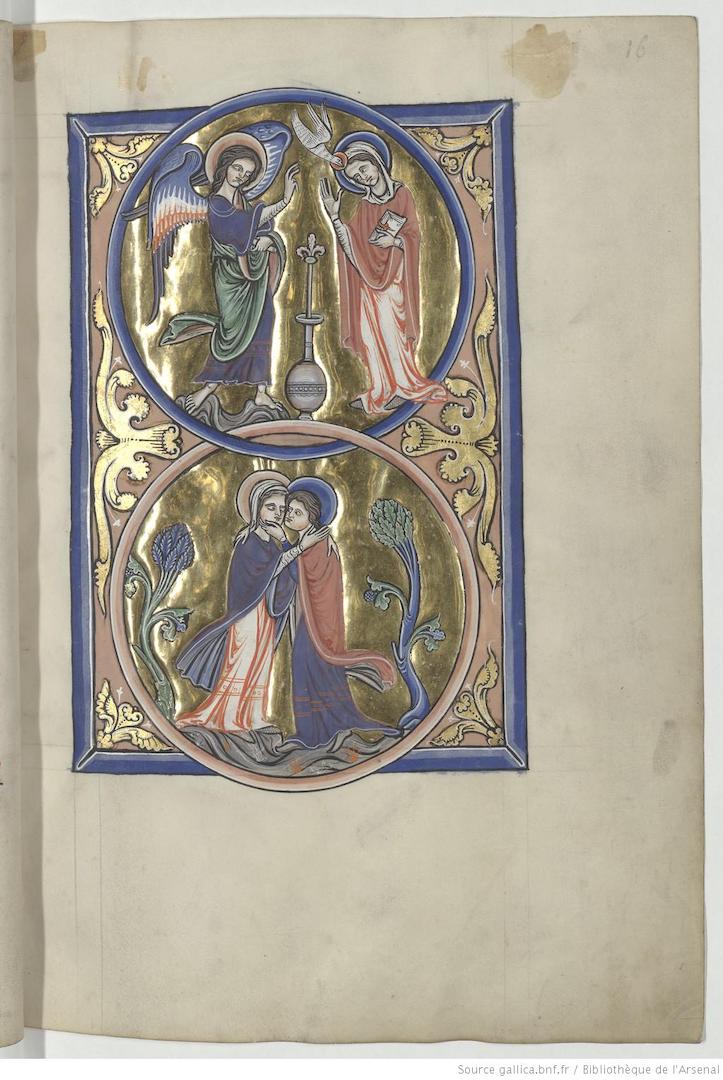 16
Source gallica.bnf.fr / Bibliothèque de l'Arsenal